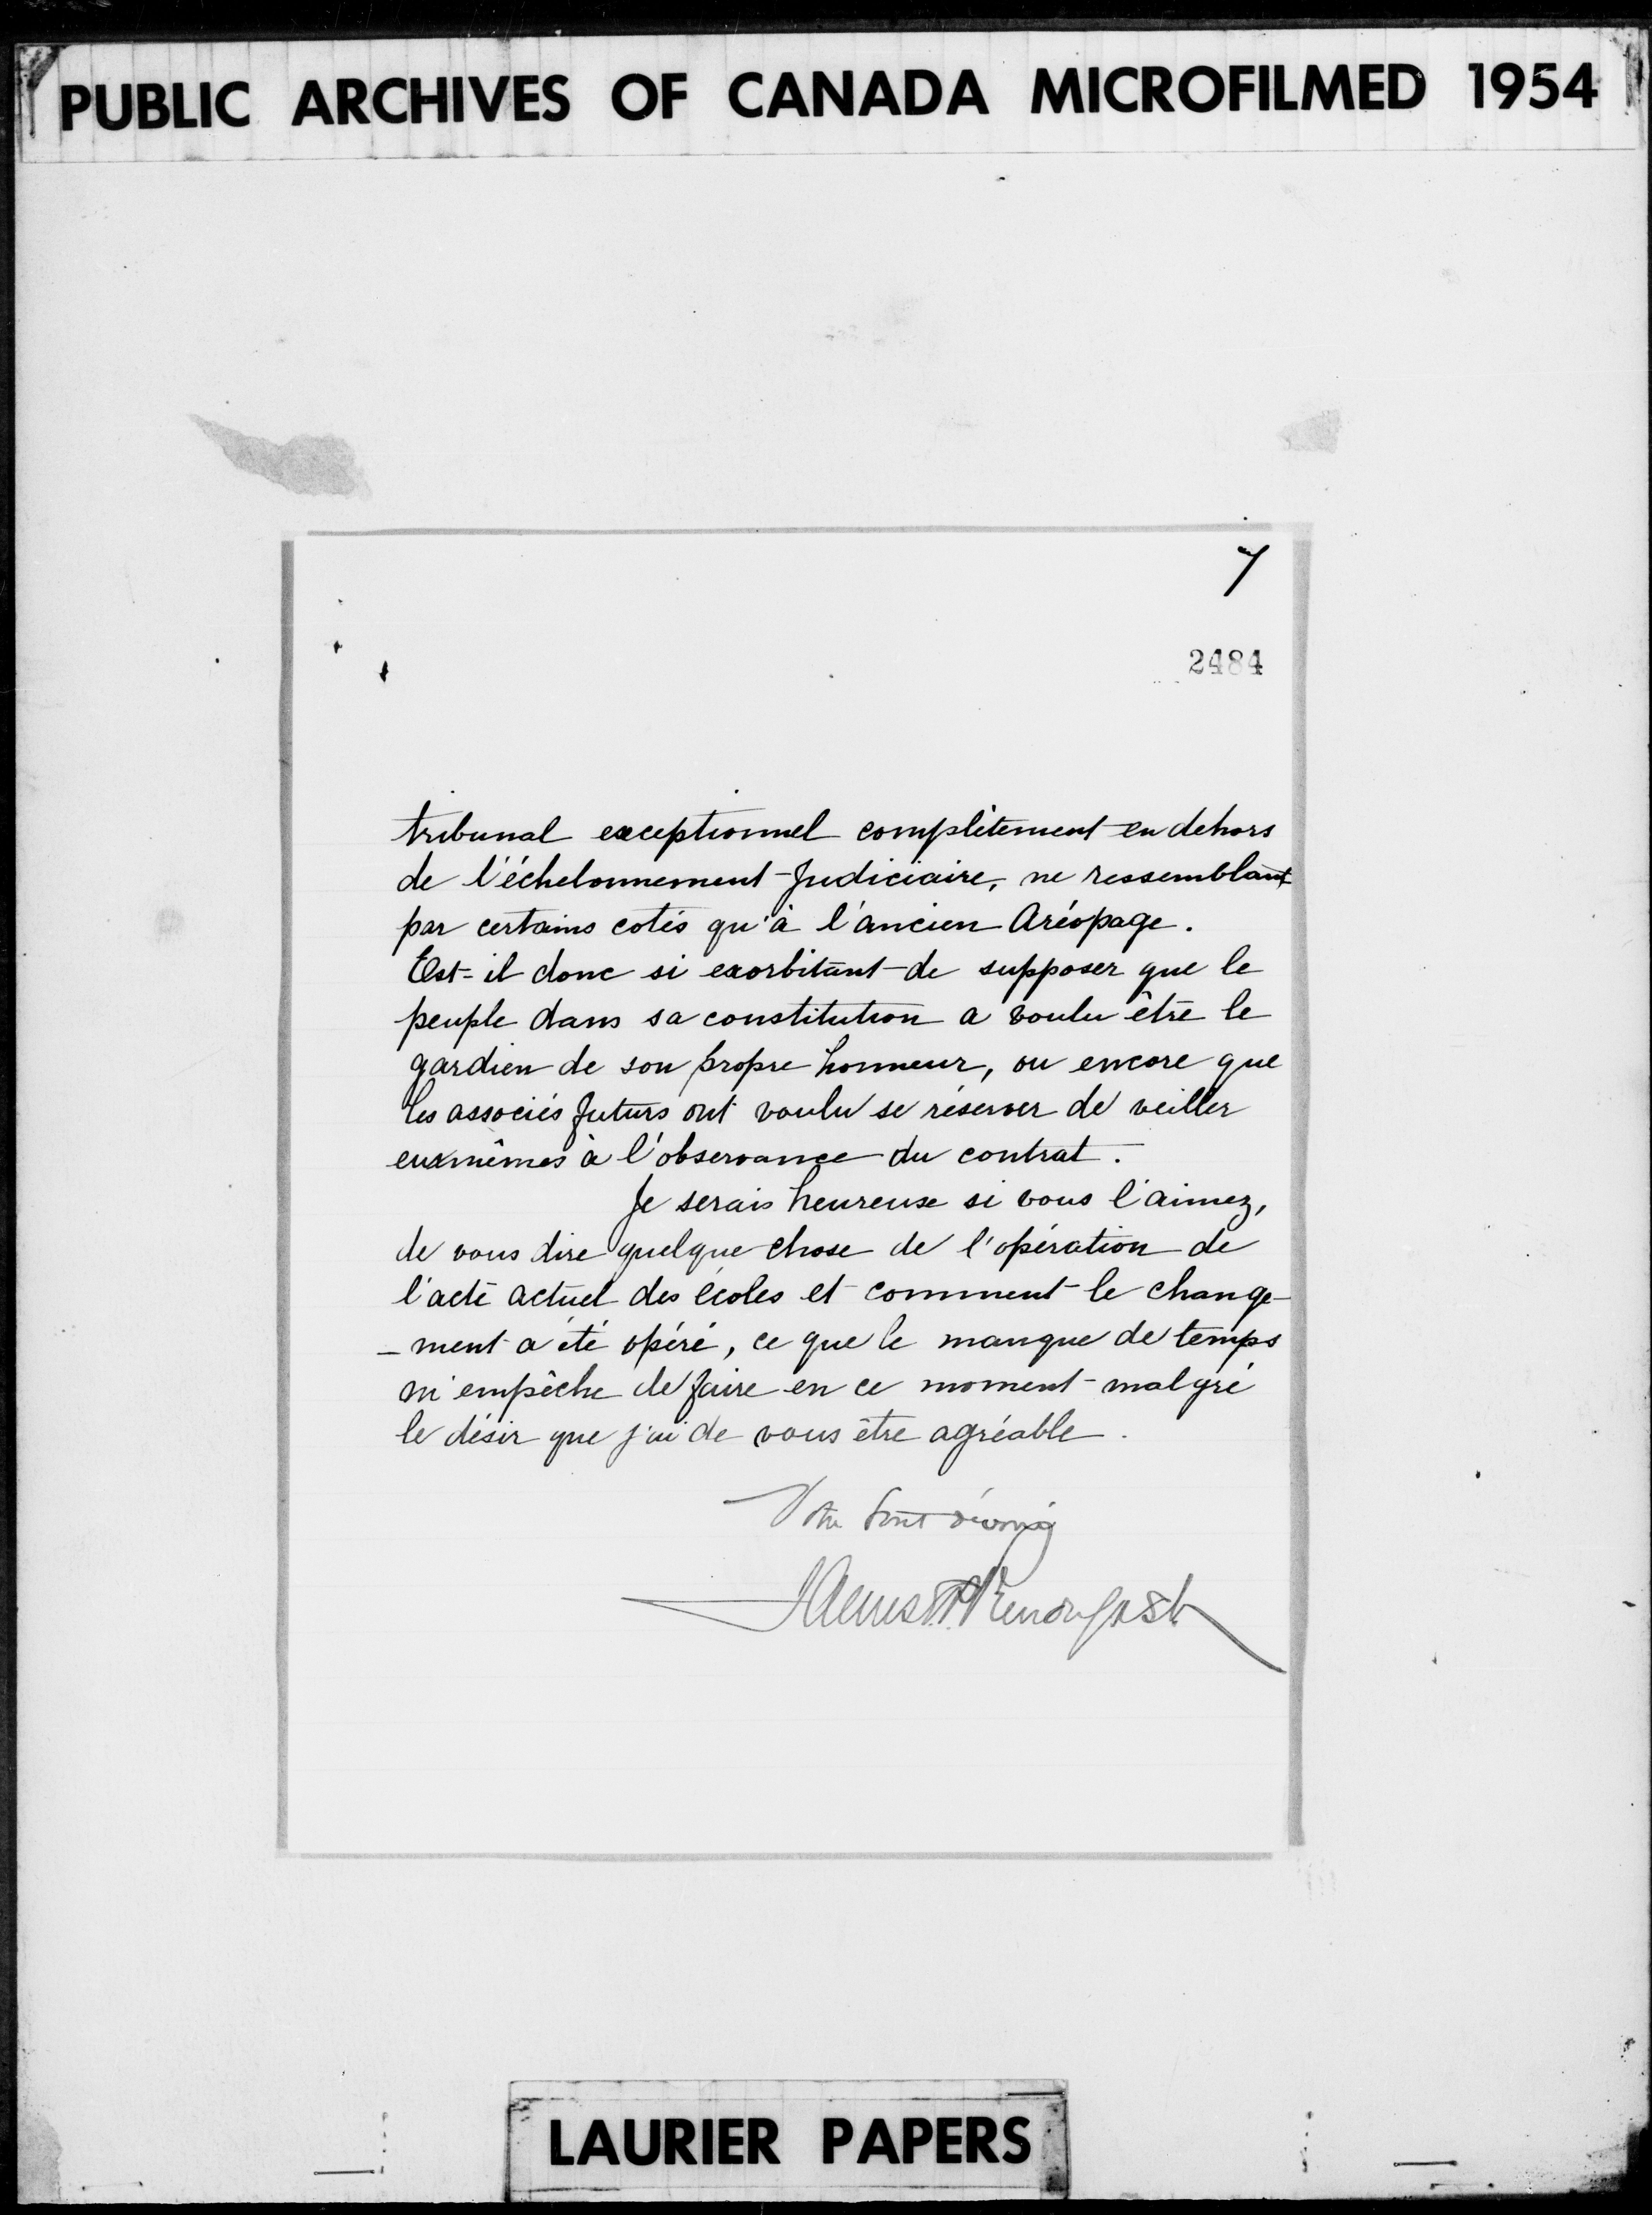 PUBLIC ARCHIVES OF CANADA MICROFILMED 1954
7
2484
tribunal exceptionnel complètement en dehors
de l'échelonnement judiciaire, ne ressemblant
par certains cotés qu'à l'ancien Aréopage.
Est-il donc si exorbitant de supposer que le
peuple dans sa constitution a voulu être le
gardien de son propre honneur, ou encore que
les associés futurs ont voulu se réserver de veiller
euxmêmes à l'observance du contrat.
Je serais heureuse si vous l'aimez,
de vous dire quelque chose de l'opération de
l'acte actuel des écoles et comment le change-
-ment a été opéré, ce que le manque de temps
m'empêche de faire en ce moment malgré
le désir que j'ai de vous être agréable.
Votre tout dévoué
James P. Prendergast
LAURIER PAPERS